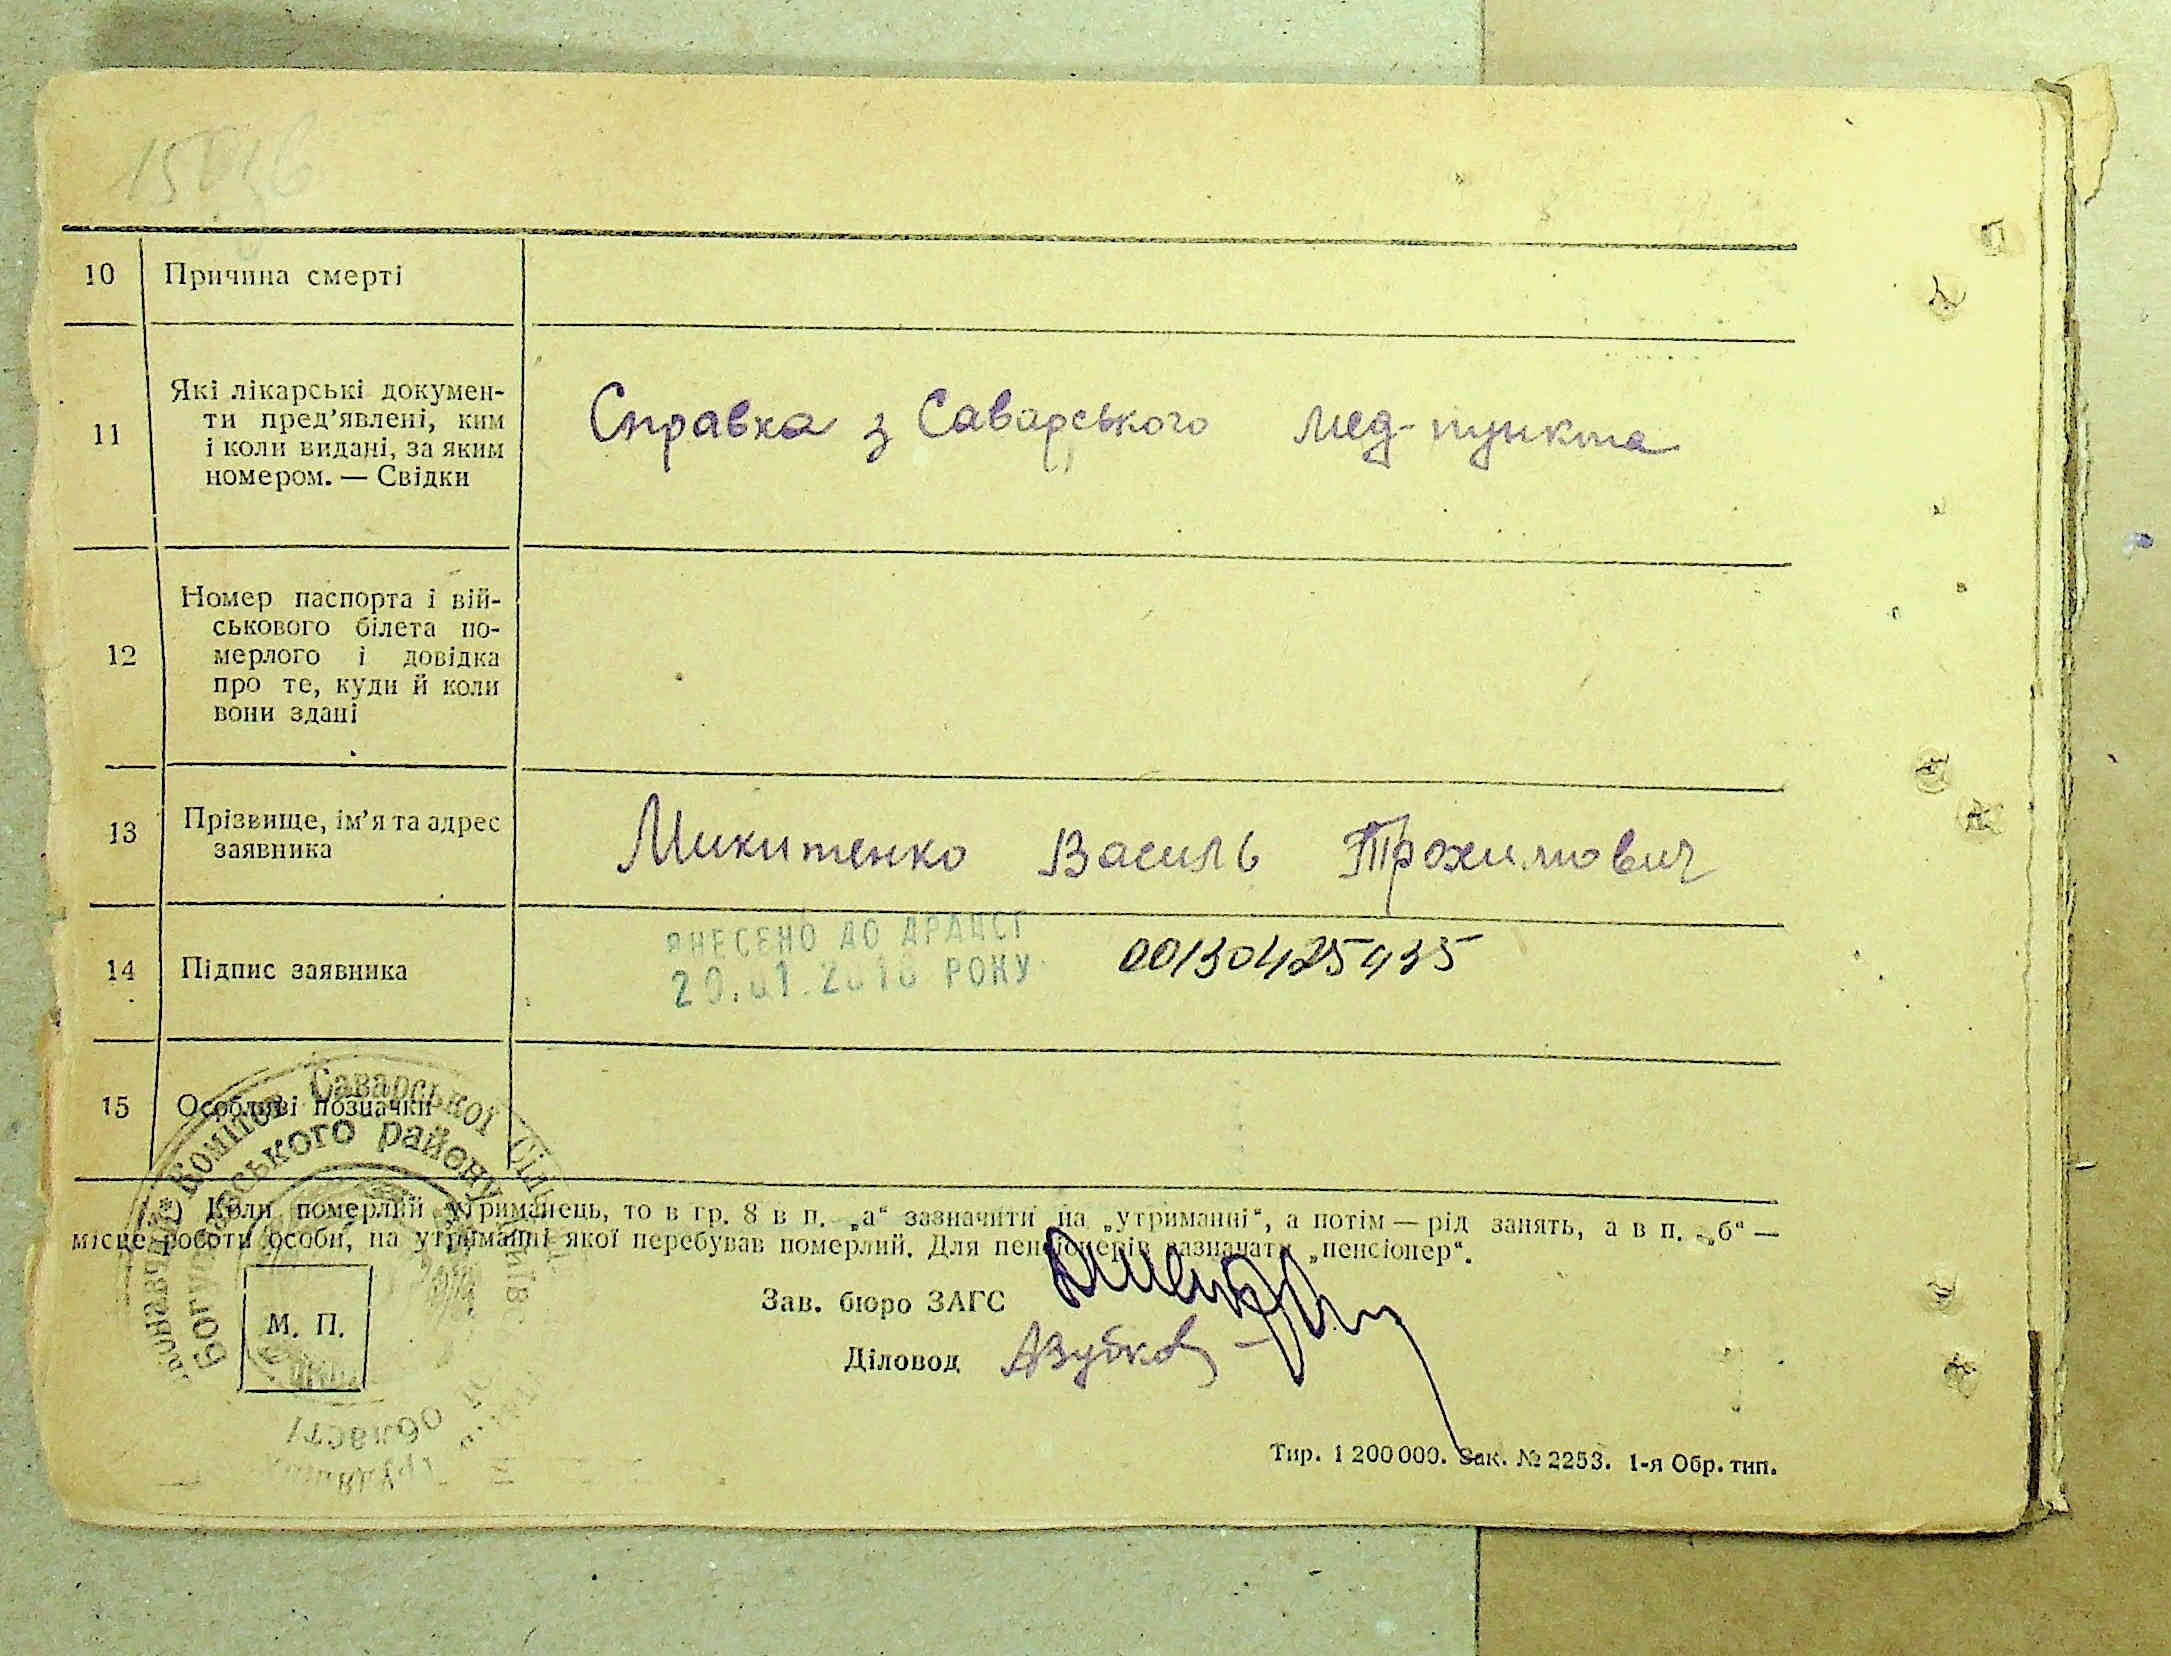 10 Причина смерті
11 Які лікарські докумен-
ти пред’явлені, ким
і коли видані, за яким
номером. — Свідки
Справка з Саварського мед-пункта
12 Номер паспорта і вій-
ськового білета по-
мерлого і довідка
про те, куди й коли
вони здані
13 Прізвище, ім’я та адрес
заявника
Микитенко Василь Трохимович
14 Підпис заявника
ВНЕСЕНО ДО ДРАЦСГ
РОКУ
00130425435
15 Особливі позначки
Комітет Саварської Сіль
Богуславського району
Київ
області
*) Коли померлий утриманець, то в гр. 8 в п. „а“ зазначити на „утриманні“, а потім — рід занять, а в п. „б“ —
місце роботи особи, на утриманні якої перебував померлий. Для пенсіонерів зазначати „пенсіонер“.
М. П.
Зав. бюро ЗАГС
Діловод
Тир. 1 200 000. Зак. № 2253. 1-я Обр. тип.